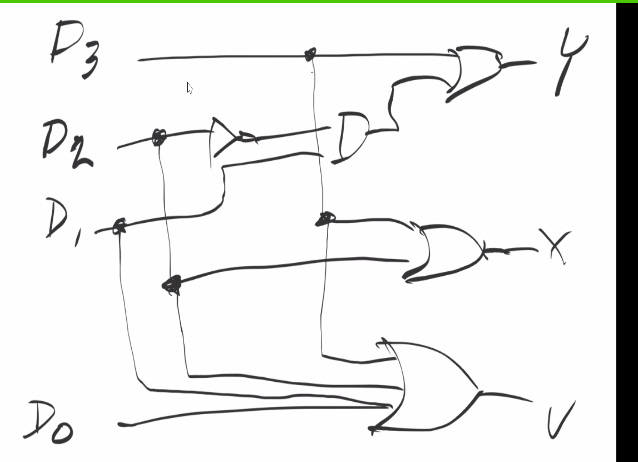 D3
Y
D2
D1
X
D0
V